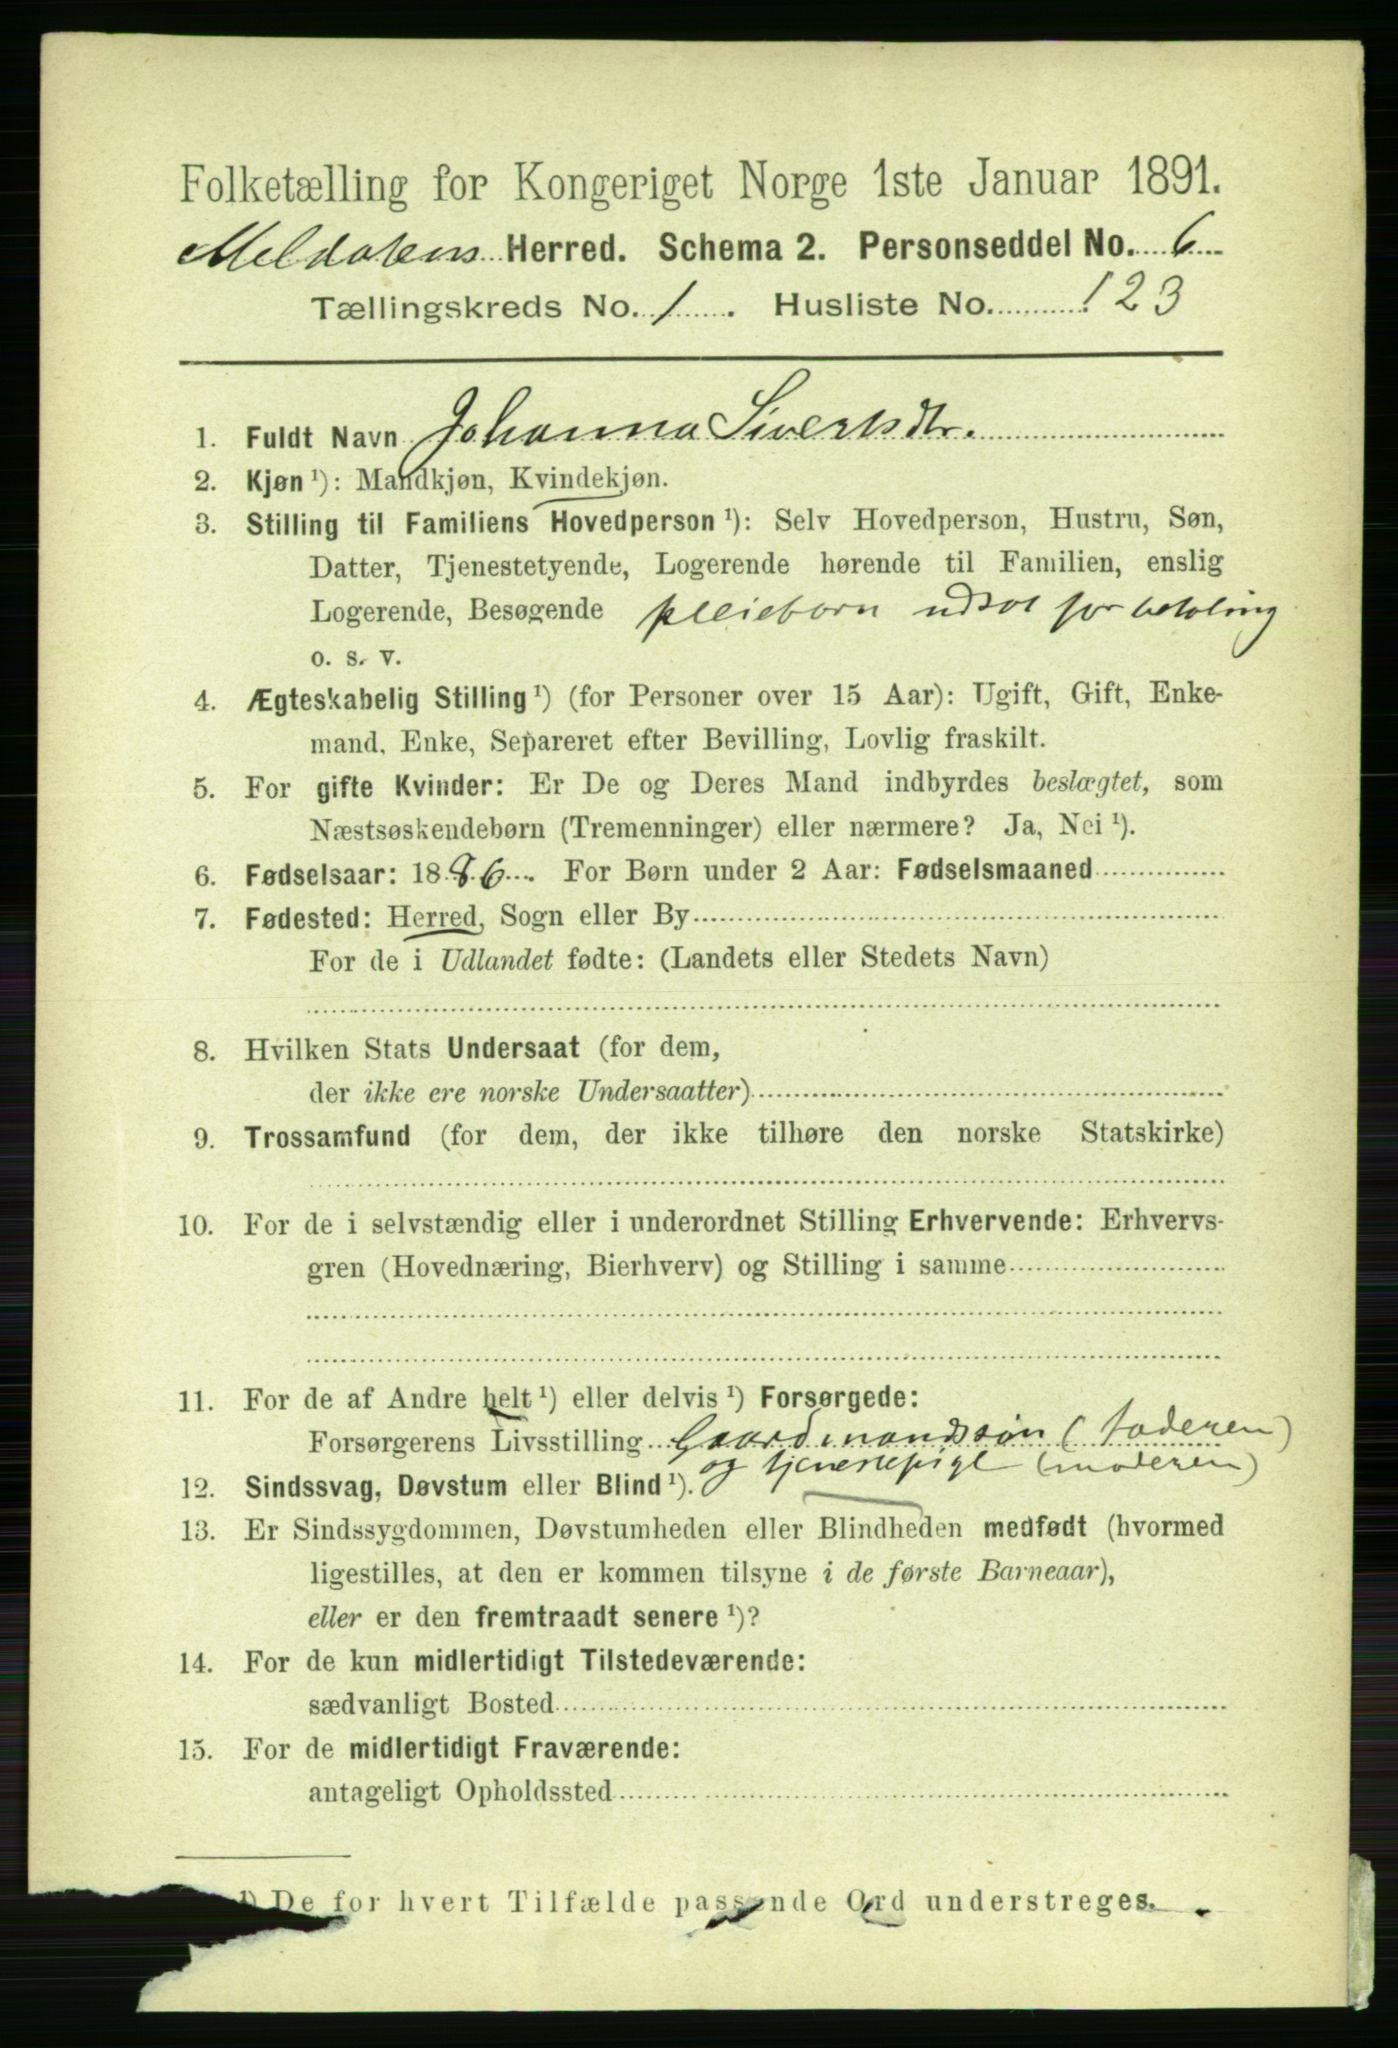 Folketælling for Kongeriget Norge 1ste Januar 1891.
Meldalens Herred. Schema 2. Personseddel No. 6
Tællingskreds No. 1. Husliste No. 123
1. Fuldt Navn Johanna Sivertsdtr.
2. Kjøn ¹): Mandkjøn, Kvindekjøn.
3. Stilling til Familiens Hovedperson ¹): Selv Hovedperson, Hustru, Søn,
Datter, Tjenestetyende, Logerende hørende til Familien, enslig
Logerende, Besøgende pleiebarn udsat for betaling
o. s. v.
4. Ægteskabelig Stilling ¹) (for Personer over 15 Aar): Ugift, Gift, Enke-
mand, Enke, Separeret efter Bevilling, Lovlig fraskilt.
5. For gifte Kvinder: Er De og Deres Mand indbyrdes beslægtet, som
Næstsøskendebørn (Tremenninger) eller nærmere? Ja, Nei ¹).
6. Fødselsaar: 1886. For Børn under 2 Aar: Fødselsmaaned
7. Fødested: Herred, Sogn eller By
For de i Udlandet fødte: (Landets eller Stedets Navn)
8. Hvilken Stats Undersaat (for dem,
der ikke ere norske Undersaatter)
9. Trossamfund (for dem, der ikke tilhøre den norske Statskirke)
10. For de i selvstændig eller i underordnet Stilling Erhvervende: Erhvervs-
gren (Hovednæring, Bierhverv) og Stilling i samme
11. For de af Andre helt ¹) eller delvis ¹) Forsørgede:
Forsørgerens Livsstilling Gaardmandssøn (faderen)
og tjenestepige (moderen)
12. Sindssvag, Døvstum eller Blind ¹).
13. Er Sindssygdommen, Døvstumheden eller Blindheden medfødt (hvormed
ligestilles, at den er kommen tilsyne i de første Barneaar),
eller er den fremtraadt senere ¹)?
14. For de kun midlertidigt Tilstedeværende:
sædvanligt Bosted
15. For de midlertidigt Fraværende:
antageligt Opholdssted
¹) De for hvert Tilfælde passende Ord understreges.